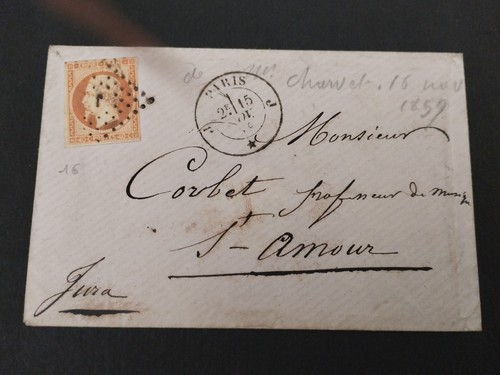 de Mr. Charvet. 16 nov
1859
PARIS
J
2E 15
Monsieur
Corbet professeur de musiq
St-Amour
Jura
16